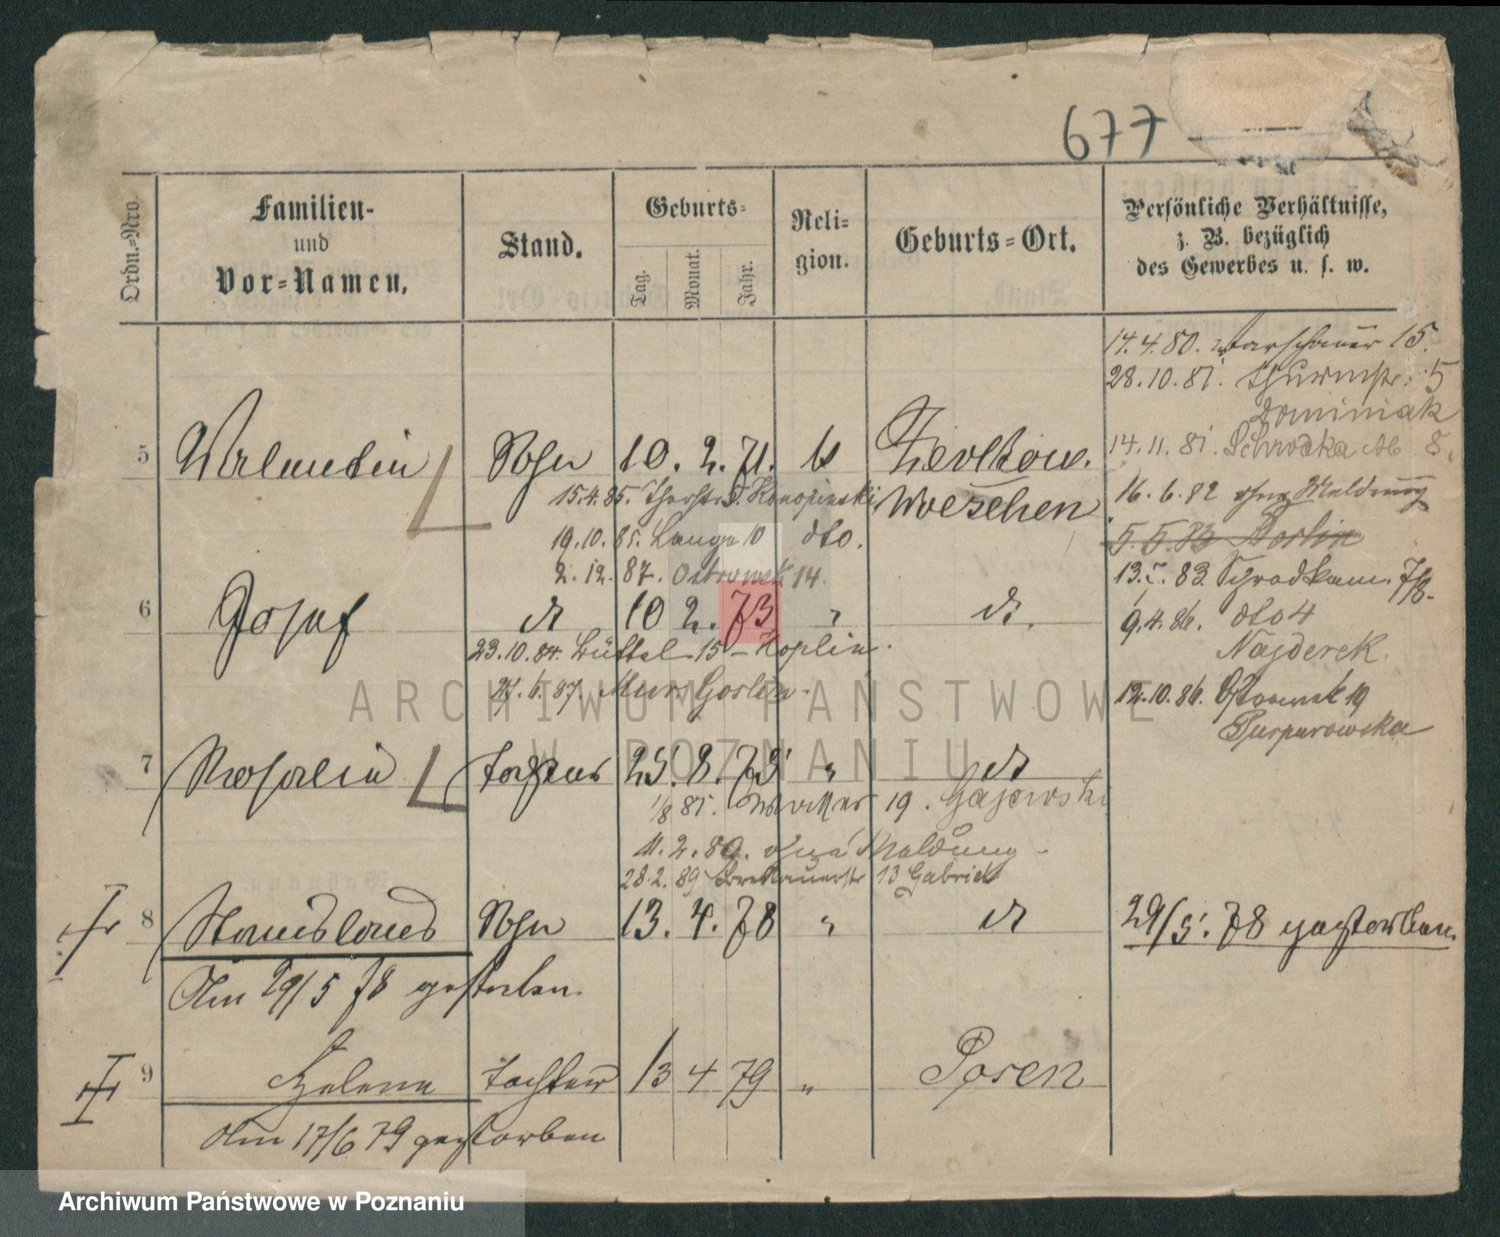 677
Ordn.-Nro.
Familien-
und
Vor-Namen.
Stand.
Geburts-
Tag.
Monat.
Jahr.
Reli-
gion.
Geburts-Ort.
Persönliche Verhältnisse,
z. B. bezüglich
des Gewerbes u. s. w.
14.4.80. Warschauer 15.
28.10.81. Thurmstr. 5
Dominiak
5 Valentin Sohn 10. 2. 71. k
Woeschen
14.11.81. Schrodka 8.
15.4.85. Konopinski
16.6.82 ohne Meldung
19.10.85. Lange 10 dto.
5.5.83 Berlin
2.12.87. Ostrowek 14.
13. 83. Schrodkam.
6 Josef dt 10 2. 73 " dt.
9.4.86. dto 4
Najderek.
23.10.84. Büttel 15 - Koplin.
87 Mur. Goslin.
12.10.86. Ostrowek 10
Purpurowska
7 Rosalia Tochter 25. 8. 75 " dt
1/8 85. 19. Gajewski
11.2.89. ohne Meldung
28.2.89 13 Gabriel
8 Stanislaus Sohn 13. 4. 78 " dt 29/5. 78 gestorben.
Am 29/5 78 gestorben.
9 Helene Tochter 13 4 79 " Posen
Am 17/6 79 gestorben
ARCHIWUM PAŃSTWOWE
W POZNANIU
Archiwum Państwowe w Poznaniu